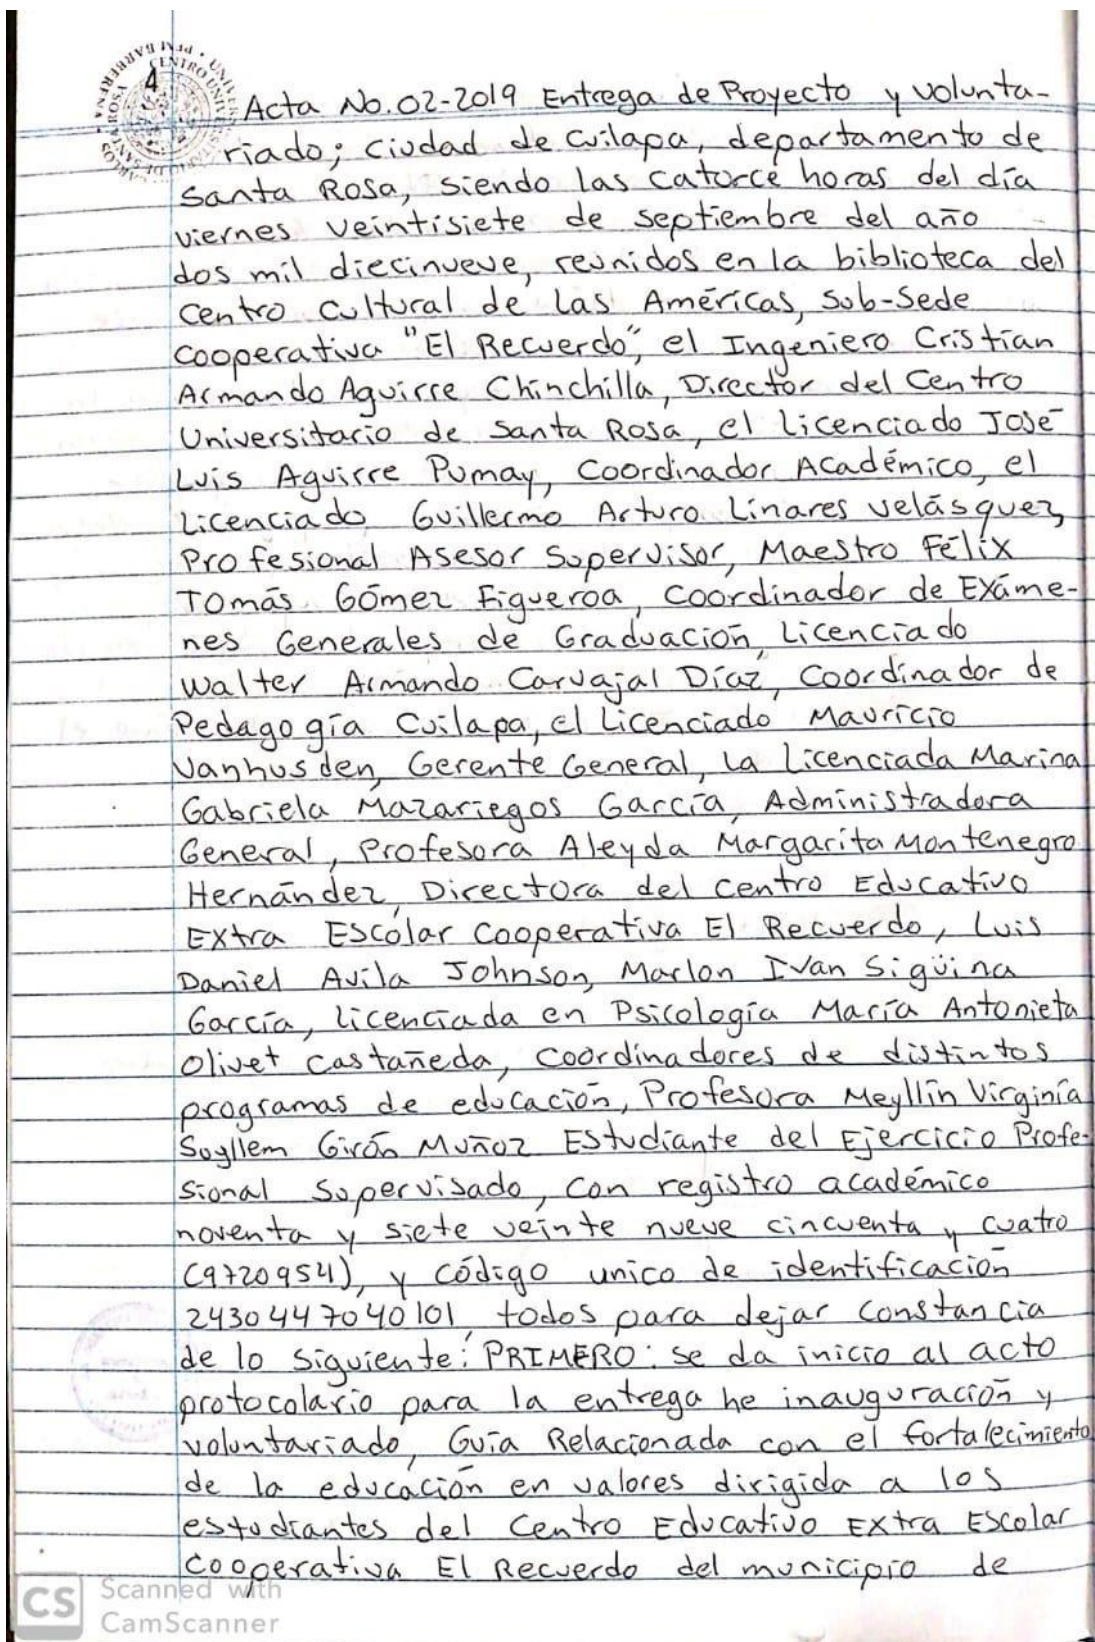 4
Acta No. 02-2019 Entrega de Proyecto y volunta-
riado; ciudad de Cuilapa, departamento de
Santa Rosa, siendo las catorce horas del día
viernes veintisiete de septiembre del año
dos mil diecinueve, reunidos en la biblioteca del
Centro Cultural de las Américas, Sub-Sede
Cooperativa "El Recuerdo", el Ingeniero Cristian
Armando Aguirre Chinchilla, Director del Centro
Universitario de Santa Rosa, el licenciado José
Luis Aguirre Pumay, Coordinador Académico, el
Licenciado Guillermo Arturo Linares Velásquez,
Profesional Asesor Supervisor, Maestro Félix
Tomás Gómez Figueroa, Coordinador de Exáme-
nes Generales de Graduación, Licenciado
Walter Armando Carvajal Díaz, Coordinador de
Pedagogía Cuilapa, el Licenciado Mauricio
Vanhusden, Gerente General, La Licenciada Marina
Gabriela Mazariegos García, Administradora
General, Profesora Aleyda Margarita Montenegro
Hernández, Directora del Centro Educativo
Extra Escolar Cooperativa El Recuerdo, Luis
Daniel Avila Johnson, Marlon Ivan Sigüina
García, licenciada en Psicología María Antonieta
Olivet Castañeda, Coordinadores de distintos
programas de educación, Profesora Meyllin Virginía
Suyllem Girón Muñoz Estudiante del Ejercicio Profe-
sional Supervisado, con registro académico
noventa y siete veinte nueve cincuenta y cuatro
(9720954), y código unico de identificación
2430447040101, todos para dejar constancia
de lo siguiente: PRIMERO: se da inicio al acto
protocolario para la entrega he inauguración y
voluntariado, Guía Relacionada con el fortalecimiento
de la educación en valores dirigida a los
estudiantes del Centro Educativo Extra Escolar
Cooperativa El Recuerdo del municipio de
CS Scanned with
CamScanner